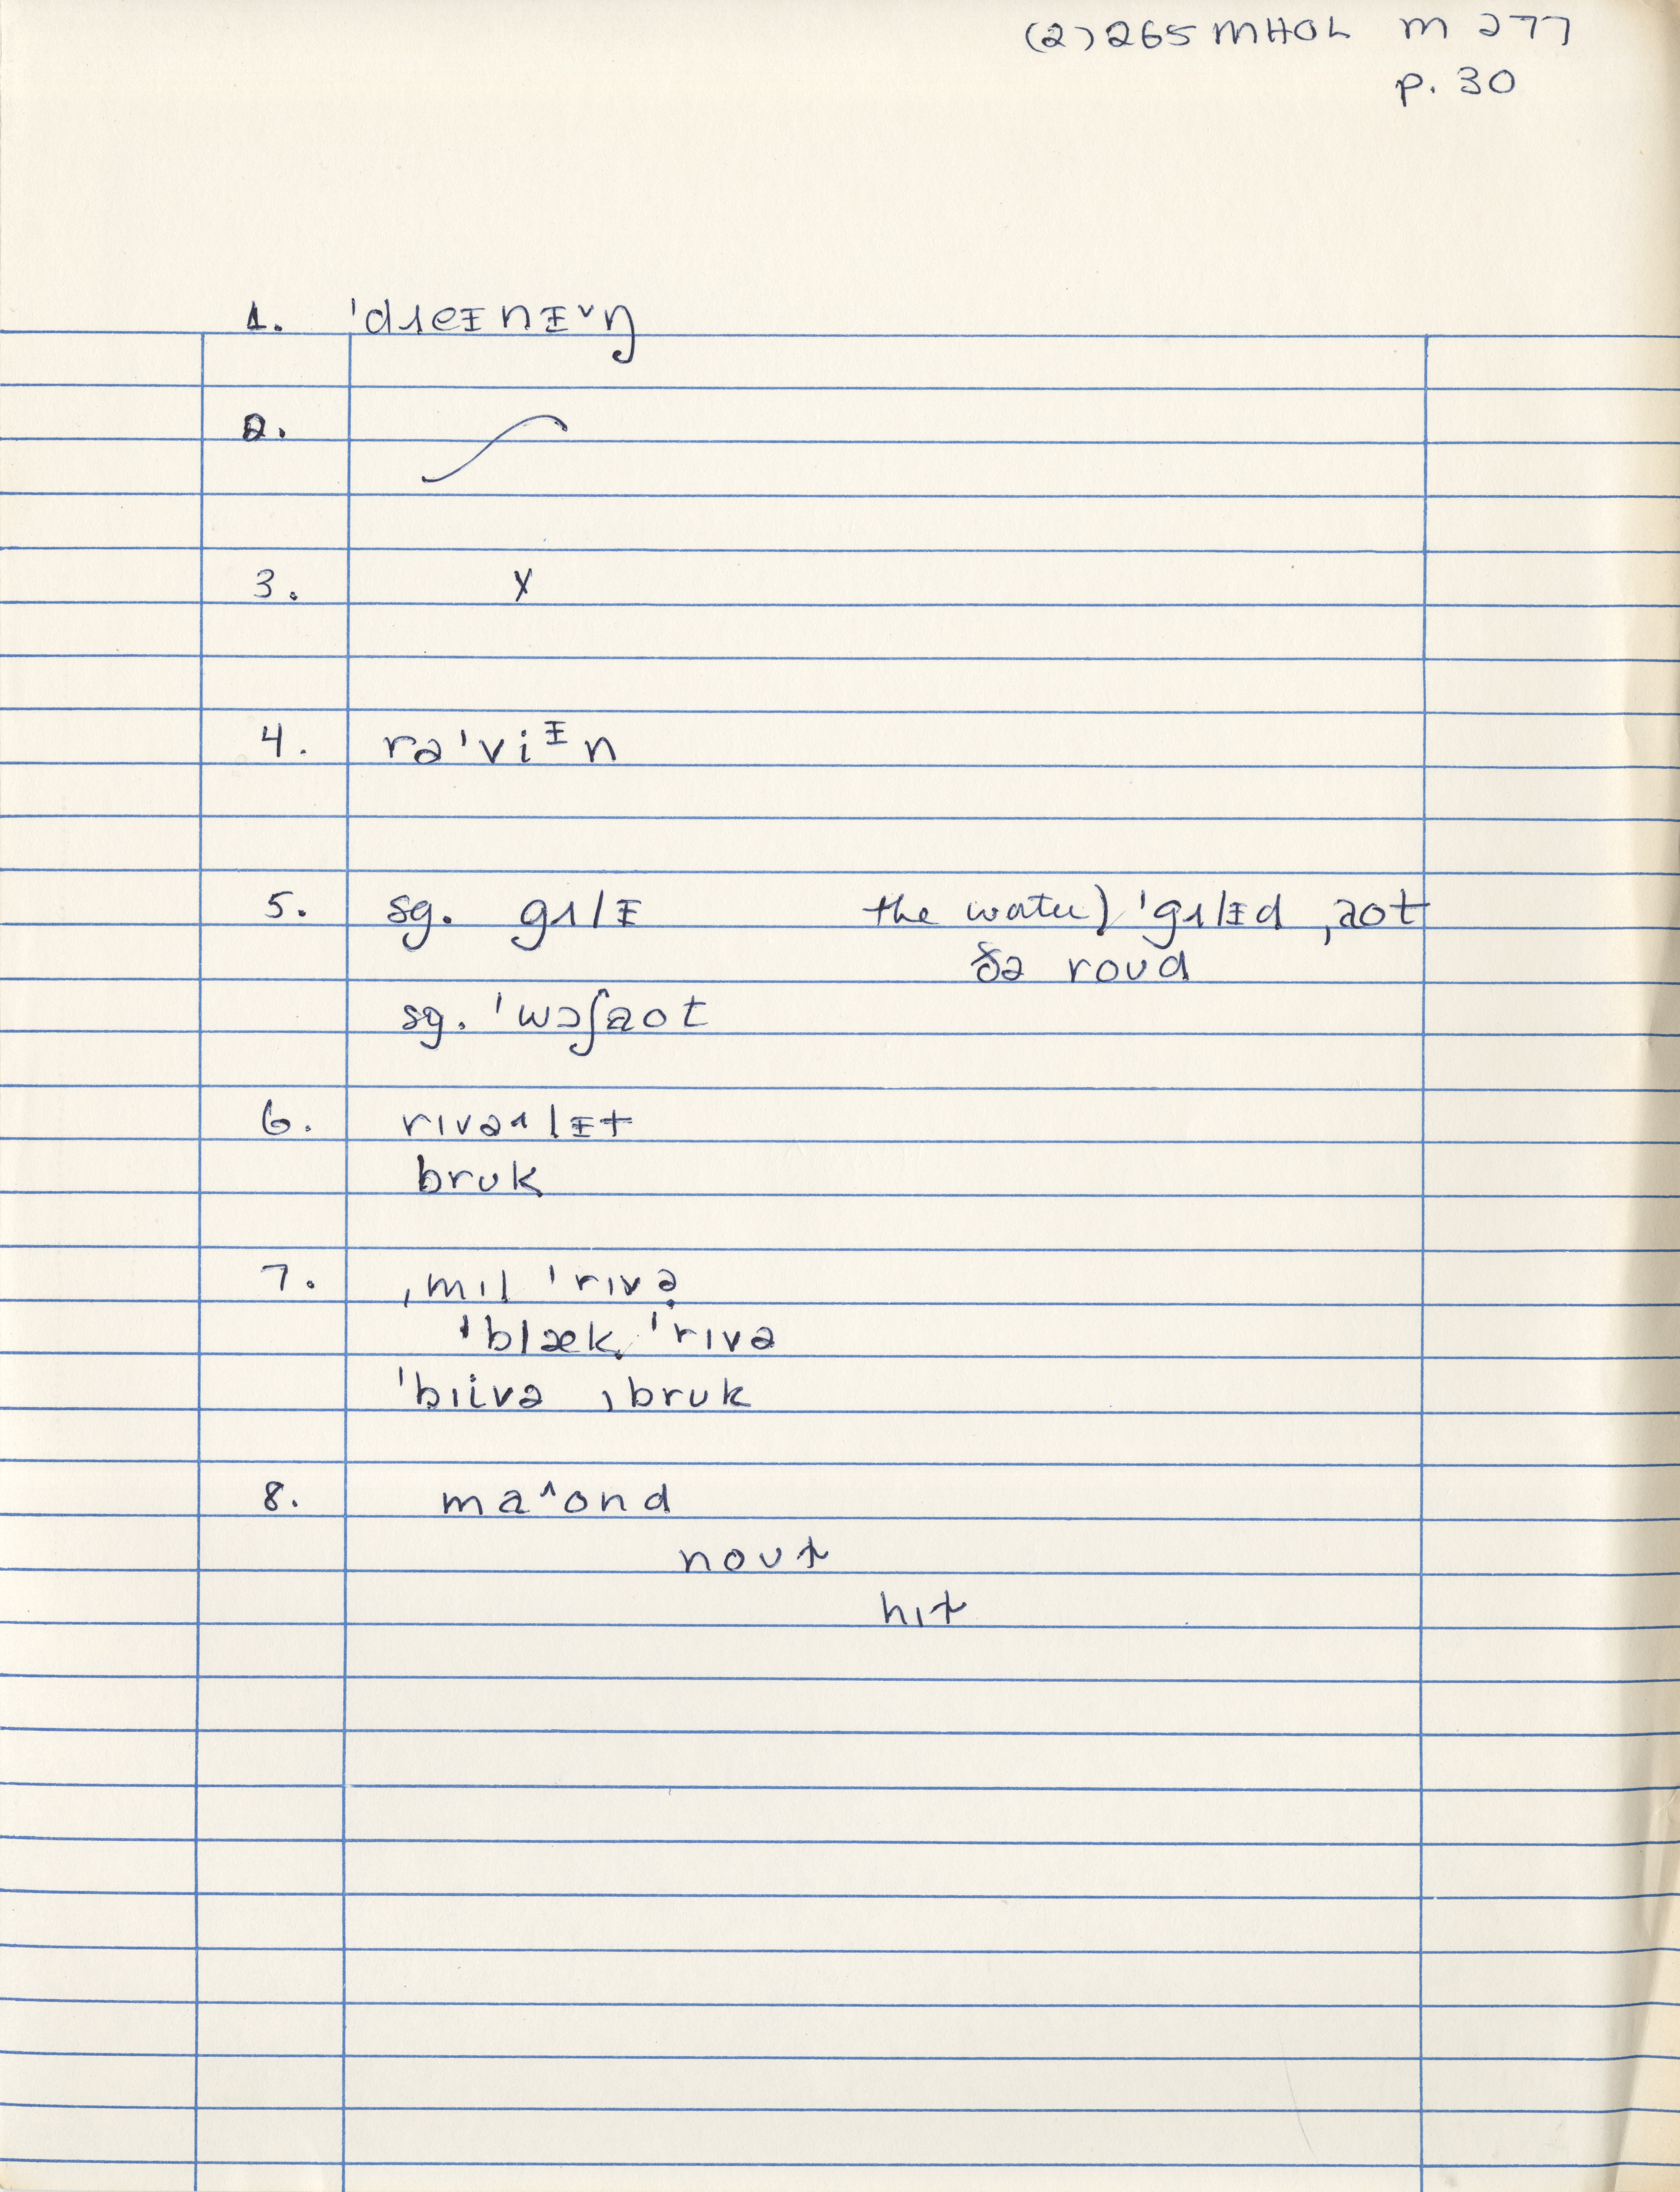 (2) 265 MHOL m 277
p. 30
1. ˈdɹeᵻnᵻ˅ŋ
2.
3. X
4. rəˈviᵻn
5. sg. gɹlᵻ the water) ˈgɹlᵻd ˌaot
ðə roud
sg. ˈwɔʃaot
6. rɪvəɹlᵻt
bruk
7. ˌmɪl ˈrɪvə
ˈblæk ˈrɪvə
ˈbɪivə ˌbruk
8. ma˄ond
nout
hɪt